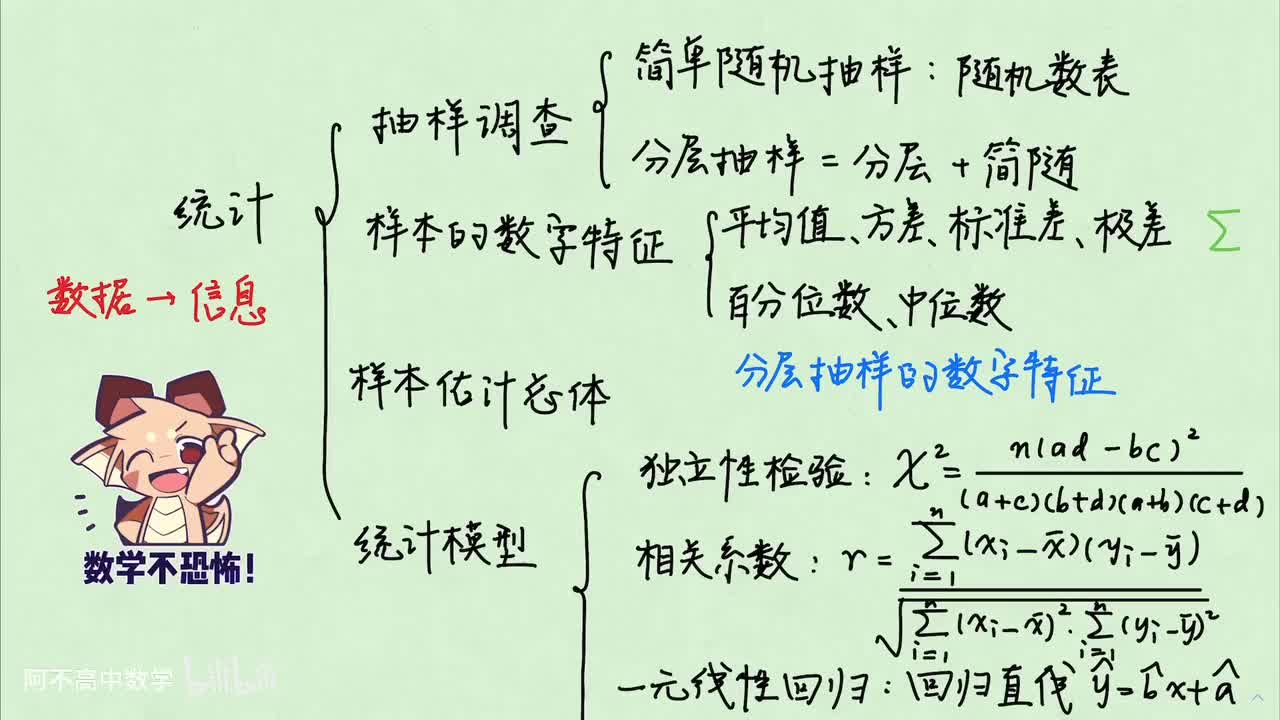 统计
数据→信息
抽样调查
简单随机抽样：随机数表
分层抽样=分层+简随
样本的数字特征
平均值、方差、标准差、极差 Σ
百分位数、中位数
分层抽样的数字特征
样本估计总体
统计模型
独立性检验：χ²=n(ad-bc)²/(a+c)(b+d)(a+b)(c+d)
相关系数：r=∑ⁿᵢ₌₁(xᵢ-x̄)(yᵢ-ȳ)/√∑ⁿᵢ₌₁(xᵢ-x̄)²·∑ⁿᵢ₌₁(yᵢ-ȳ)²
一元线性回归：回归直线 ŷ=b̂x+â
数学不恐怖!
阿不高中数学 bilibili